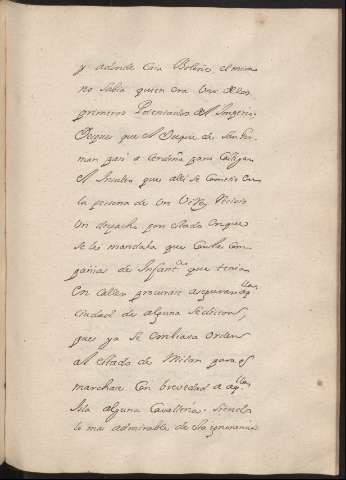 y adonde caia Bolonia, el mismo
no sabia quien era Uno de los
primeros Potentados del Imperio.
Despues que el Duque de San Ger-
man pasó a Cerdeña para castigar
el Insulto que alli se cometio en
la persona de un Virrey
Un despacho por estado en que
se le mandaba que con las com-
pañias de Infant.ria que tenia
en Caller procurase asegurar aqlla
ciudad de alguna sedicion,
pues ya se embiava orden
al estado de Milan para q
marchase con brevedad a aqlla
Isla alguna Cavalleria. siendo
lo mas admirable de esta ignorancia